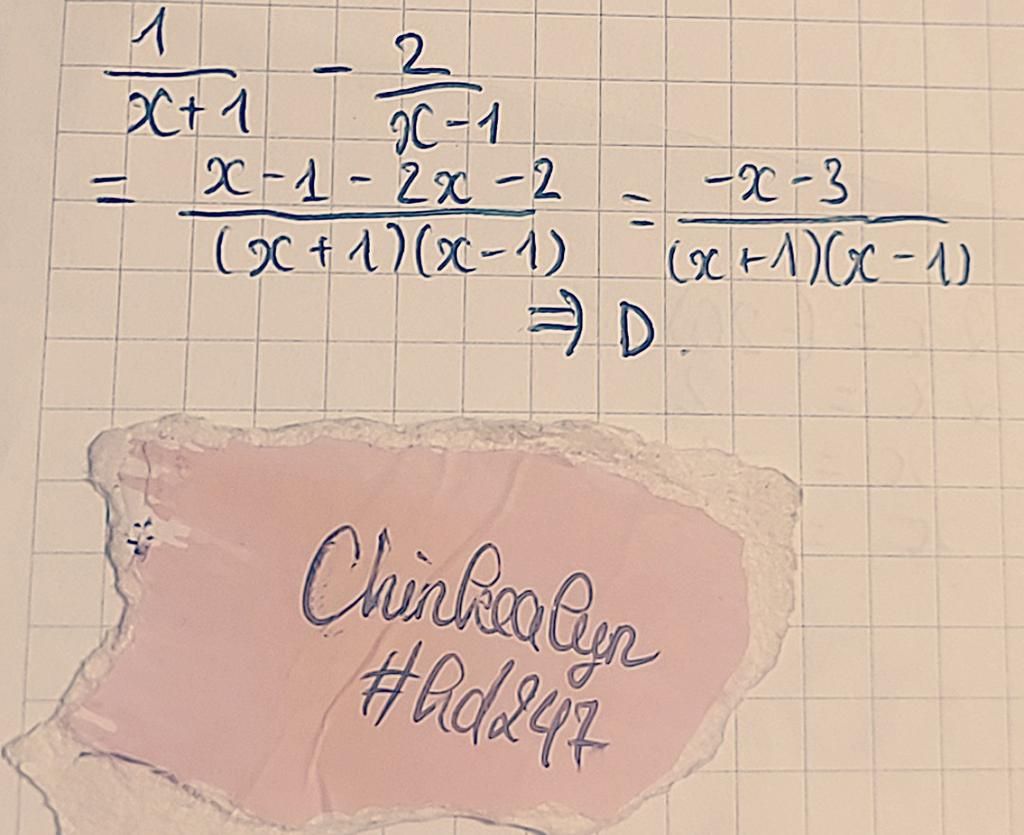 1/(x+1) - 2/(x-1)
= (x-1-2x-2)/((x+1)(x-1)) = (-x-3)/((x+1)(x-1))
⇒ D.
Chinkealyn
#hd247